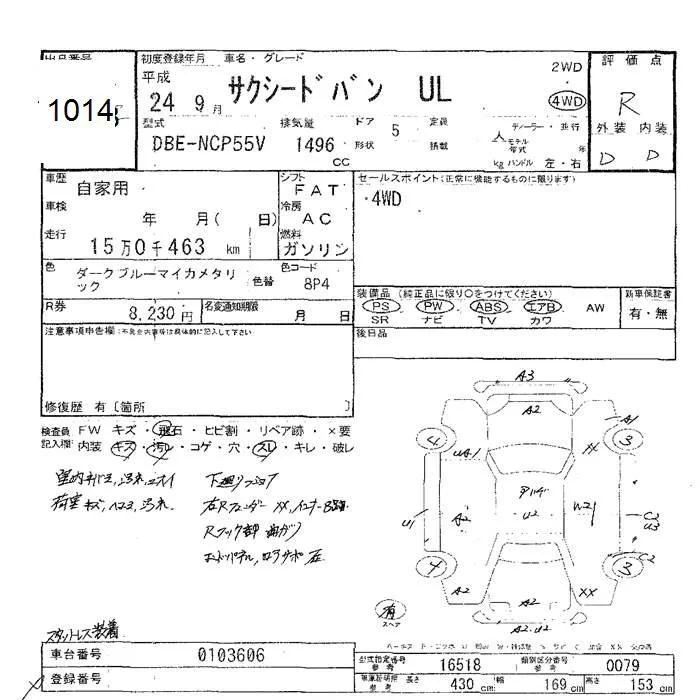 出品番号
1014
初度登録年月 車名・グレード
平成
24 9月 サクシードバン UL
2WD
4WD
評価点
R
外装 内装
D D
型式 排気量 ドア 5 定員
DBE-NCP55V 1496 形状 積載
cc
人 ディーラー・並行
モデル年式 年
kg ハンドル 左・右
車歴 自家用
車検 年 月( 日)
走行 15万0千463 km
シフト FAT
冷房 AC
燃料 ガソリン
セールスポイント(正常に機能するものに限ります)
・4WD
色 ダークブルーマイカメタリック
色替
色コード 8P4
R券 8,230円 名変通知期限 月 日
装備品 (純正品に限り○をつけてください)
PS PW ABS エアB AW
SR ナビ TV カワ
新車保証書
有・無
注意事項申告欄:(不具合内容等は具体的に記入して下さい)
後日品
修復歴 有 〔箇所 〕
検査員記入欄: FW キズ・飛石・ヒビ割・リペア跡・×要
内装 キズ・汚レ・コゲ・穴・スレ・キレ・破レ
下廻りサビ
A3
A2
A1
4
3
UA1
XX
U2
W21
A2
U1
C2
U3
C2
4
3
A2
XX
A2
A2・U2
有
スペア
スタットレス装着
車台番号 0103606
登録番号
型式指定番号 参考 16518 類別区分番号 参考 0079
車庫証明用 参考 長さ 430 cm 幅 169 cm 高さ 153 cm